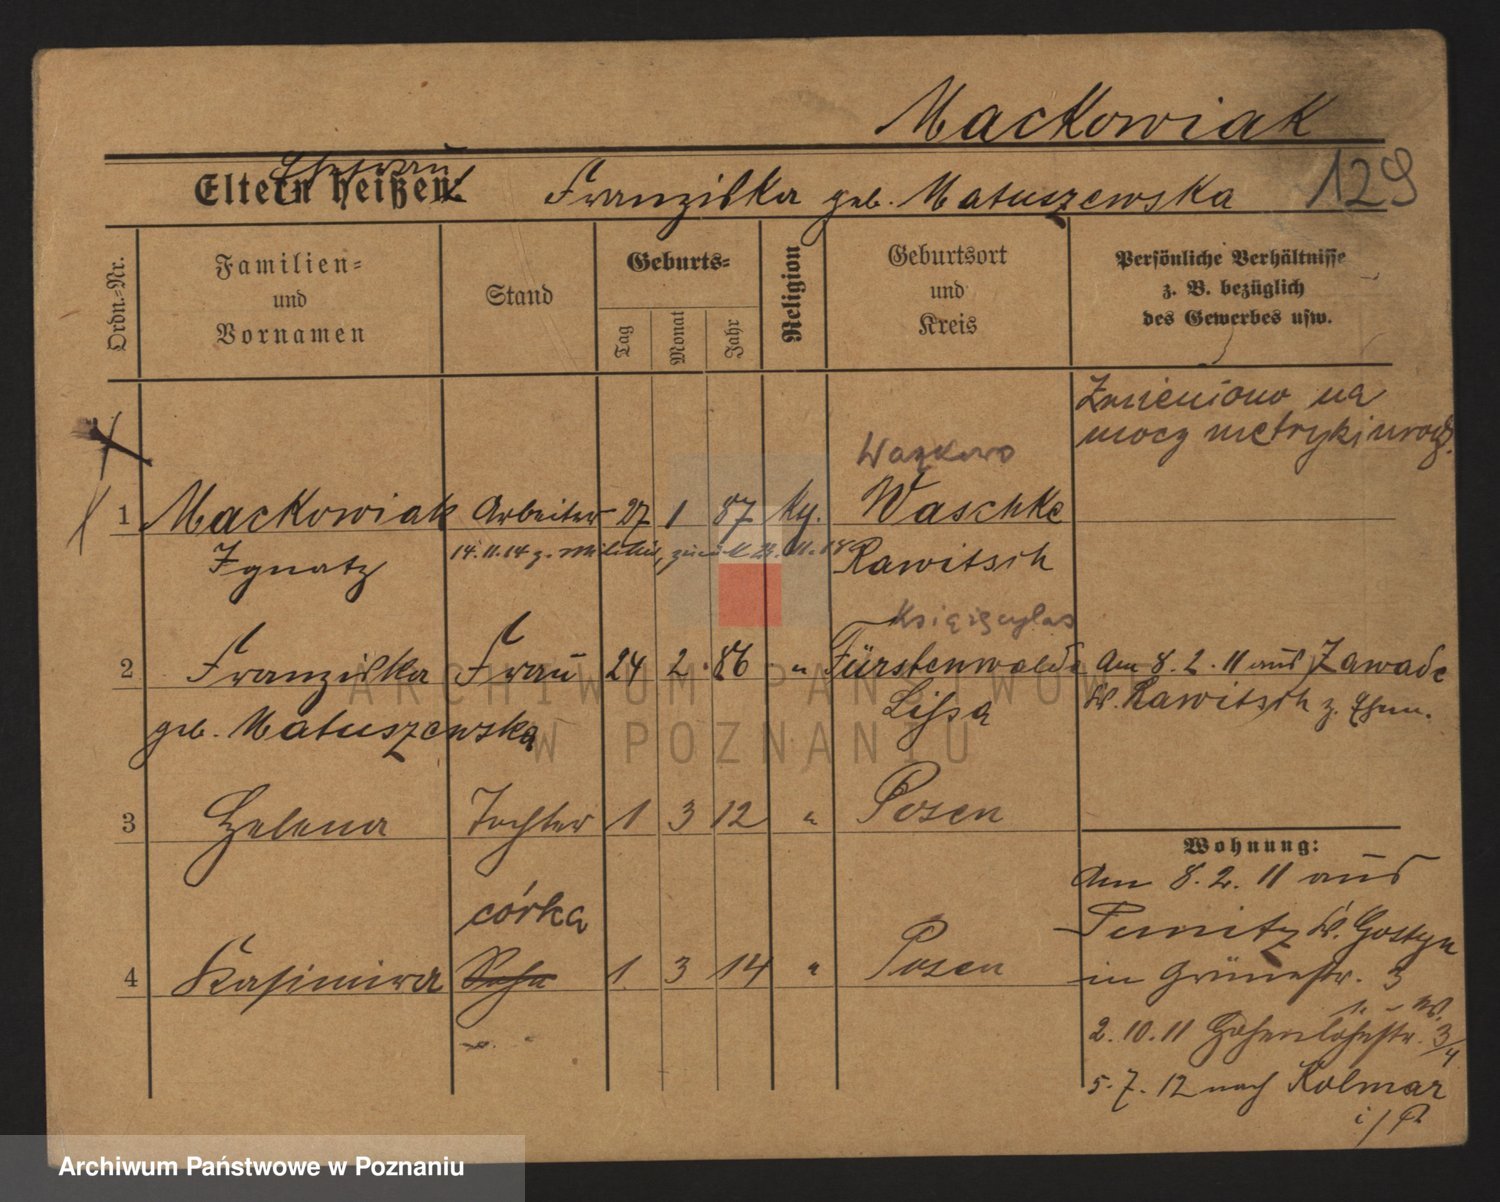 Mackowiak
129
Ehefrau
Eltern heißen:
Franziska geb. Matuszewska
Ordn.-Nr.
Familien-
und
Vornamen
Stand
Geburts-
Tag
Monat
Jahr
Religion
Geburtsort
und
Kreis
Persönliche Verhältnisse
z. B. bezüglich
des Gewerbes usw.
Zmieniono na
mocy metryki urodz.
Waszkowo
1 Mackowiak Arbeiter 27 1 87 kg. Waschke
Ignatz 14.11.14 z. Militär, zurück 23.11.18 Rawitsch
Książęcylas
2 Franziska Frau 24 2. 86 " Fürstenwalde Am 8.2.11 aus Zawade
geb. Matuszewska Lissa Kr. Rawitsch z. Ehem.
3 Helena Tochter 1 3 12 " Posen
Wohnung:
Am 8.2.11 aus
córka
Punitz Kr. Gostyn
4 Kasimira Sohn 1 3 14 " Posen
in Grünestr. 3
2.10.11 Hohenlohestr. 3/4
5.7.12 nach Kolmar
i/P
ARCHIWUM PAŃSTWOWE
W POZNANIU
Archiwum Państwowe w Poznaniu